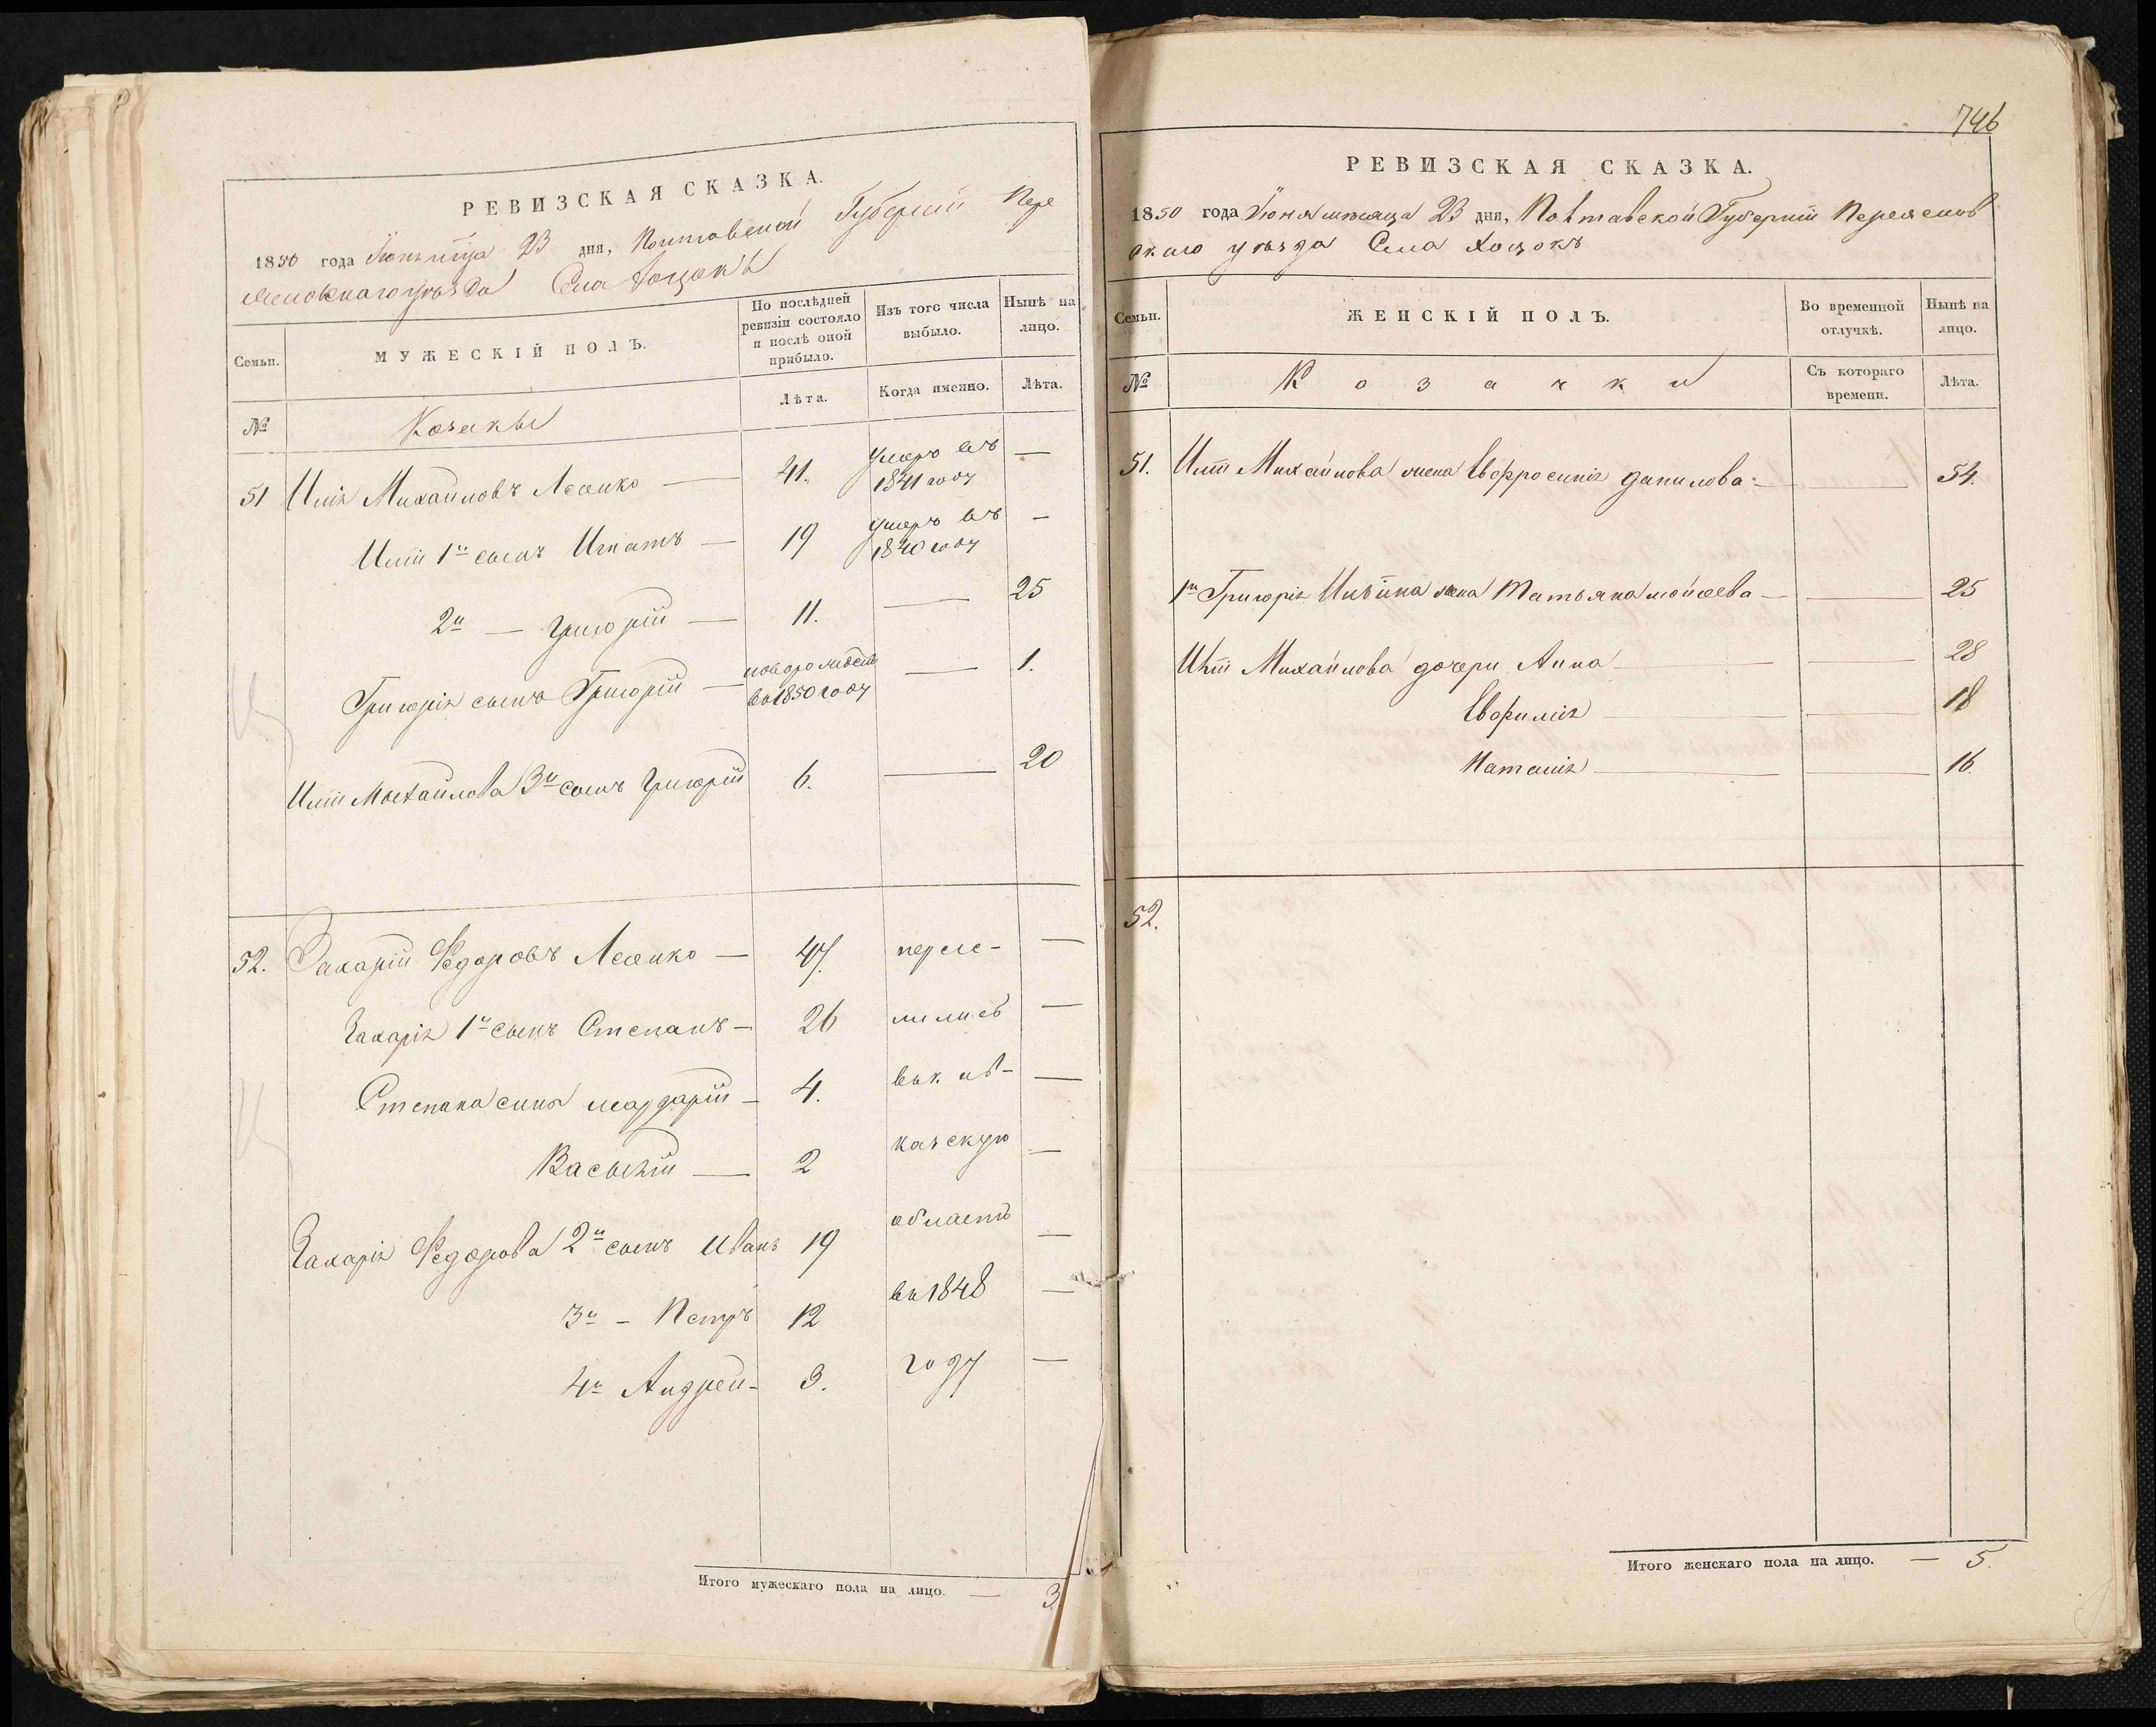 РЕВИЗСКАЯ СКАЗКА.
1850 года Іюня мця 23 дня, Полтавской Губерніи Пере
яславскаго уѣзда Села Хоцокъ
Семьи. МУЖЕСКІЙ ПОЛЪ. По послѣдней ревизіи состояло и послѣ оной прибыло. Изъ того числа выбыло. Нынѣ на лицо.
№ Козаки Лѣта. Когда именно. Лѣта.
51 Илія Михайловъ Лесенко — 41. умеръ въ 1841 году —
Иліи 1й сынъ Игнатъ — 19 умеръ въ 1840 году —
2й — Григорій — 11. — 25
Григорія сынъ Григорій — новорожден въ 1850 году — 1.
Иліи Михайлова 3й сынъ Григорій 6. — 20
52. Захарій Федоровъ Лесенко — 47. пересе- —
Захарія 1й сынъ Степанъ — 26 лились —
Степана сынъ Мардарій — 4. въ кав- —
Василій — 2 казскую —
Захарія Федорова 2й сынъ Иванъ 19 область —
3й — Петръ 12 въ 1848 —
4й Андрей — 3. году —
Итого мужескаго пола на лицо. — 3.
746
РЕВИЗСКАЯ СКАЗКА.
1850 года Іюня мѣсяца 23 дня, Полтавской Губерніи Переяслов
скаго уѣзда Села Хоцокъ
Семьи. ЖЕНСКІЙ ПОЛЪ. Во временной отлучкѣ. Нынѣ на лицо.
№ Козачки Съ котораго времени. Лѣта.
51. Иліи Михайлова жена Евфросинія Данилова — — 54.
1й Григорія Ильина жена Татьяна Мойсеева — — 25
Иліи Михайлова дочери Анна — — 28
Евфимія — — 18
Наталія — — 16.
52.
Итого женскаго пола на лицо. — 5.